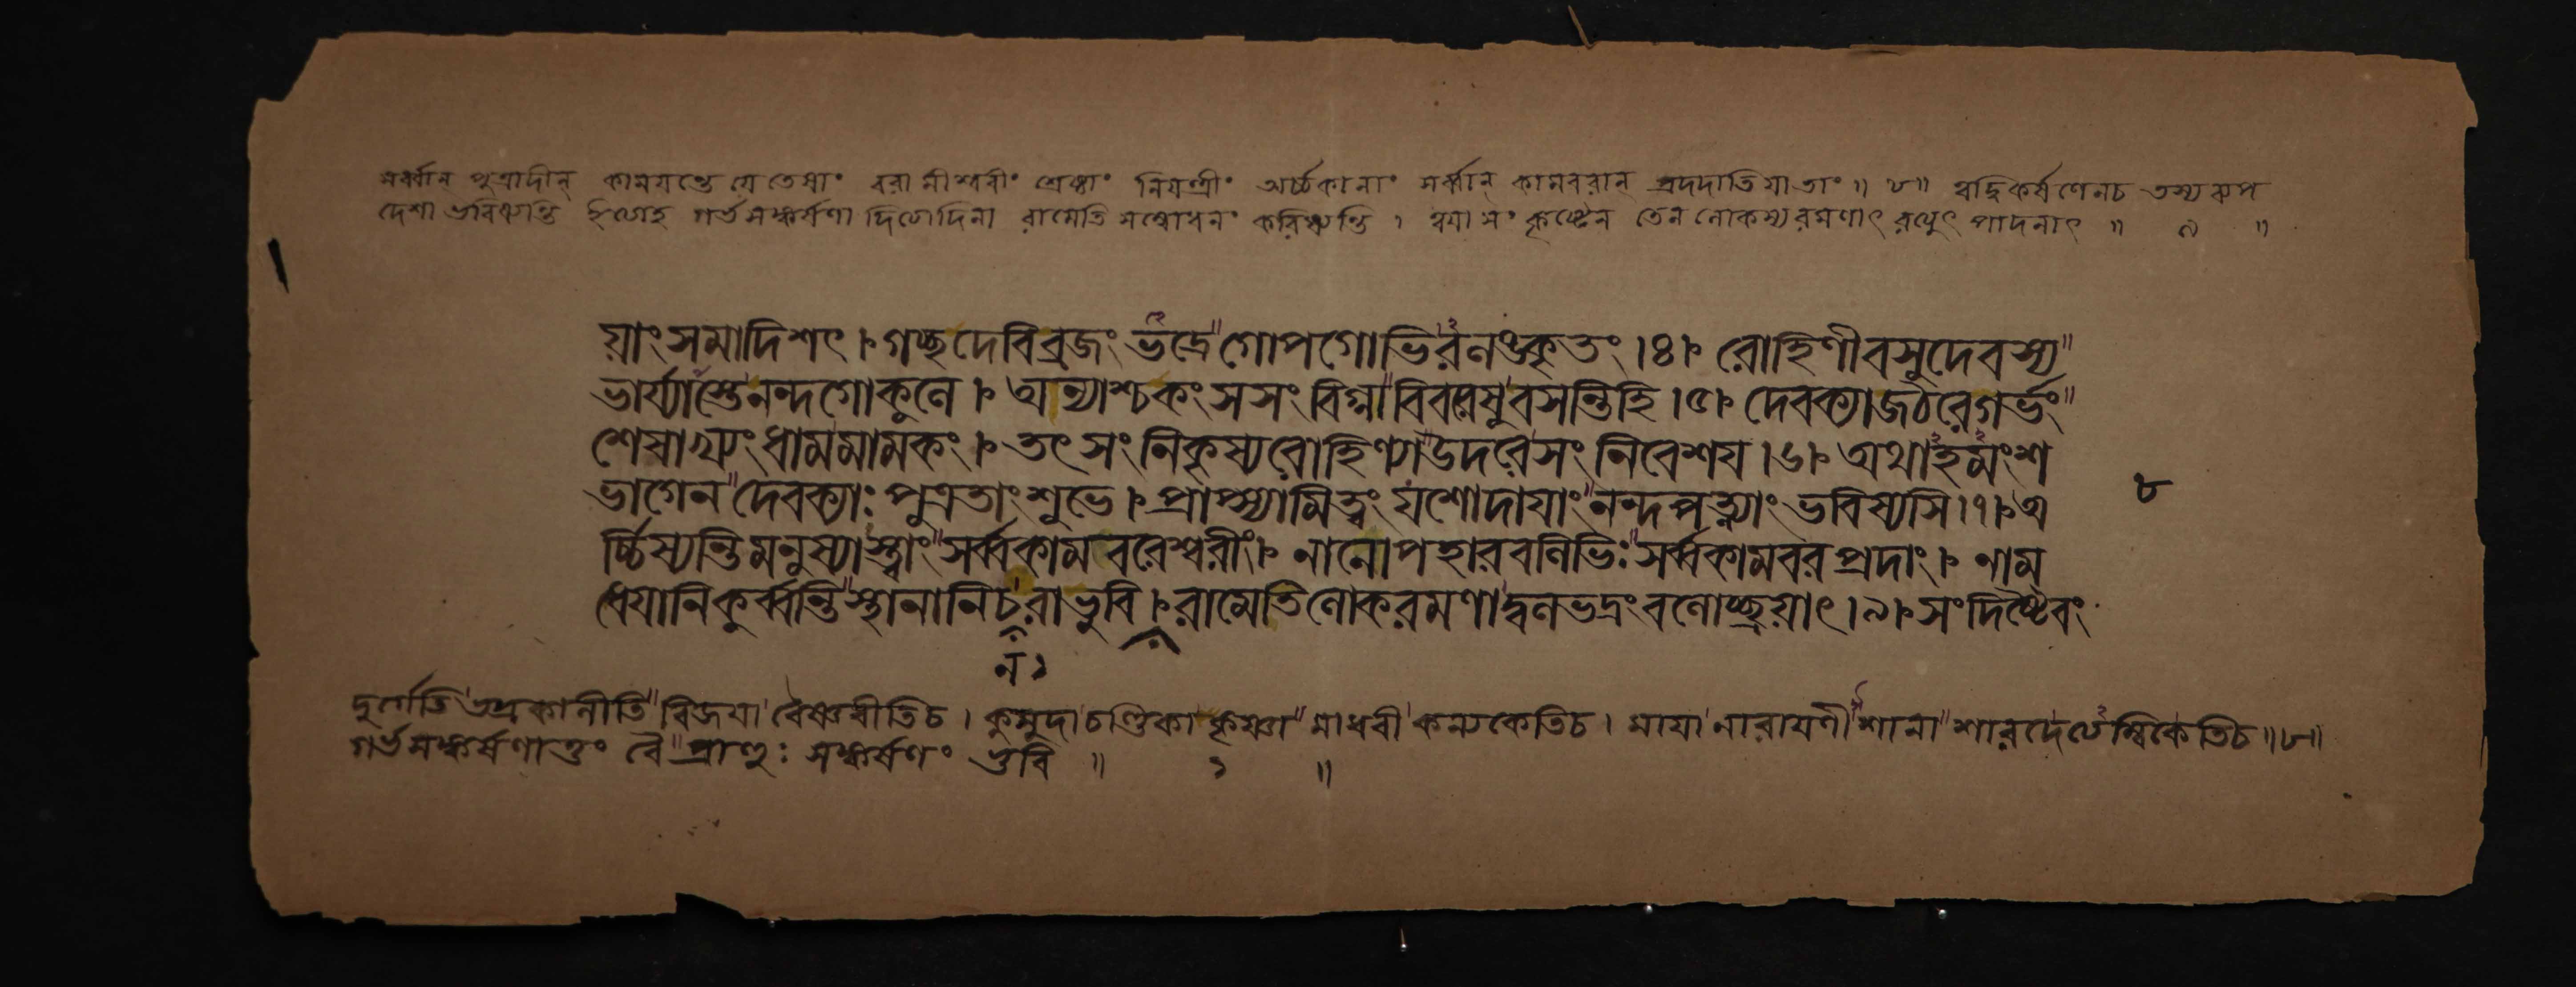 সর্ব্বান্ পুত্রাদীন্ কাময়ন্তে যে তেষাং বরামীশ্বরীং শ্রেষ্ঠাং নিযন্ত্রীং অর্চ্চকানাং সর্ব্বান্ কামবরান্ প্রদদাতি যা তাং॥ ৮॥
দেশা ভবিষ্যন্তি গর্ভসঙ্কর্ষণা রামেতি সম্বোধনং করিষ্যন্তি । তেন লোকস্য রমণাৎ রত্যুৎপাদনাৎ ॥ ৯ ॥
য়াং সমাদিশৎ । গচ্ছ দেবি ব্রজং ভদ্রে গোপগোভিরলঙ্কৃতং ।৪। রোহিণী বসুদেবস্য
ভার্য্যাস্তে নন্দগোকুলে । অন্যাশ্চ কংসসংবিগ্না বিবরেষু বসন্তি হি ।৫। দেবক্যা জঠরে গর্ভং
শেষাখ্যং ধাম মামকং । তৎ সংনিকৃষ্য রোহিণ্যা উদরে সংনিবেশয ।৬। অথাহমংশ
ভাগেন দেবক্যাঃ পুত্রতাং শুভে । প্রাপ্স্যামি ত্বং যশোদাযাং নন্দপত্ন্যাং ভবিষ্যসি ।৭। অ
র্চ্চিষ্যন্তি মনুষ্যাস্ত্বাং সর্ব্বকামবরেশ্বরীং । নানোপহারবলিভিঃ সর্ব্বকামবরপ্রদাং । নাম
ধেযানি কুর্ব্বন্তি স্থানানি চ রা ভুবি । রামেতি লোকরমণাদ্বলভদ্রং বলোচ্ছ্রয়াৎ ।৯। সংদিষ্টৈবং
৮
ন১
দুর্গেতি ভদ্রকালীতি বিজযা বৈষ্ণবীতি চ । কুমুদা চণ্ডিকা কৃষ্ণা মাধবী কন্যকেতি চ । মাযা নারাযণীশানা শারদেত্যম্বিকেতি চ ॥৮॥
গর্ভসঙ্কর্ষণাত্তং বৈ প্রাহুঃ সঙ্কর্ষণং ভুবি ॥ ১ ॥